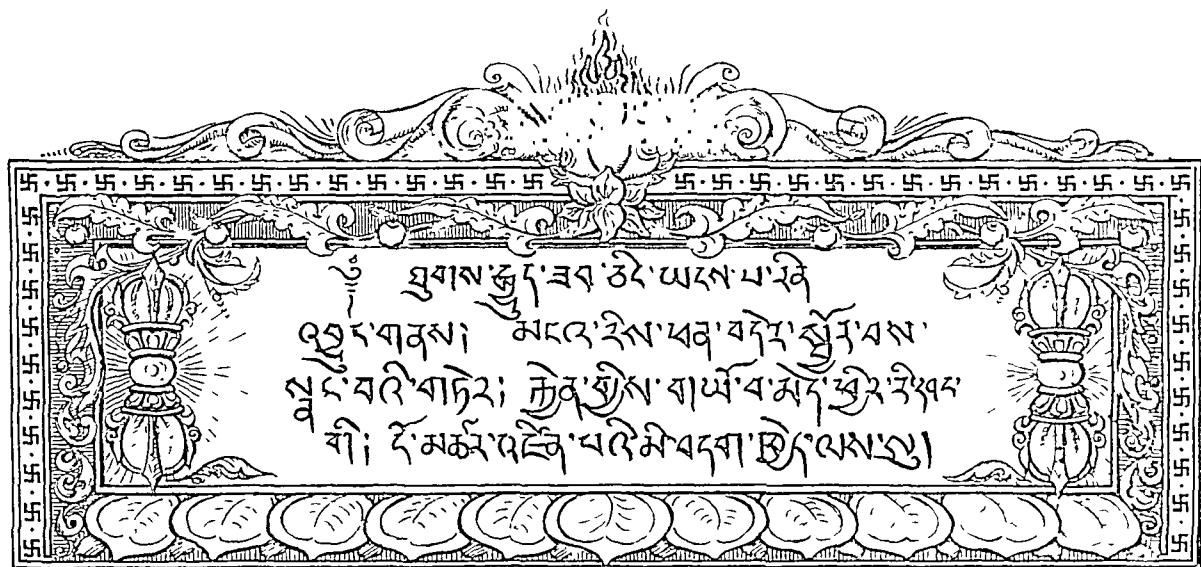 ༄ ཐུགས་རྒྱུད་ཟབ་ཅིང་ཡངས་པ་རིན
འབྱུང་གནས། མངའ་རིས་ཕན་བདེར་སྦྱོར་བས་
སྣང་བའི་གཏེར། རྐྱེན་གྱིས་གཡོ་བ་མེད་ཕྱིར་རི་དབང་
གི། ངོ་མཚར་འཛིན་པའི་མི་བདག་ཁྱེད་ལས་སུ།